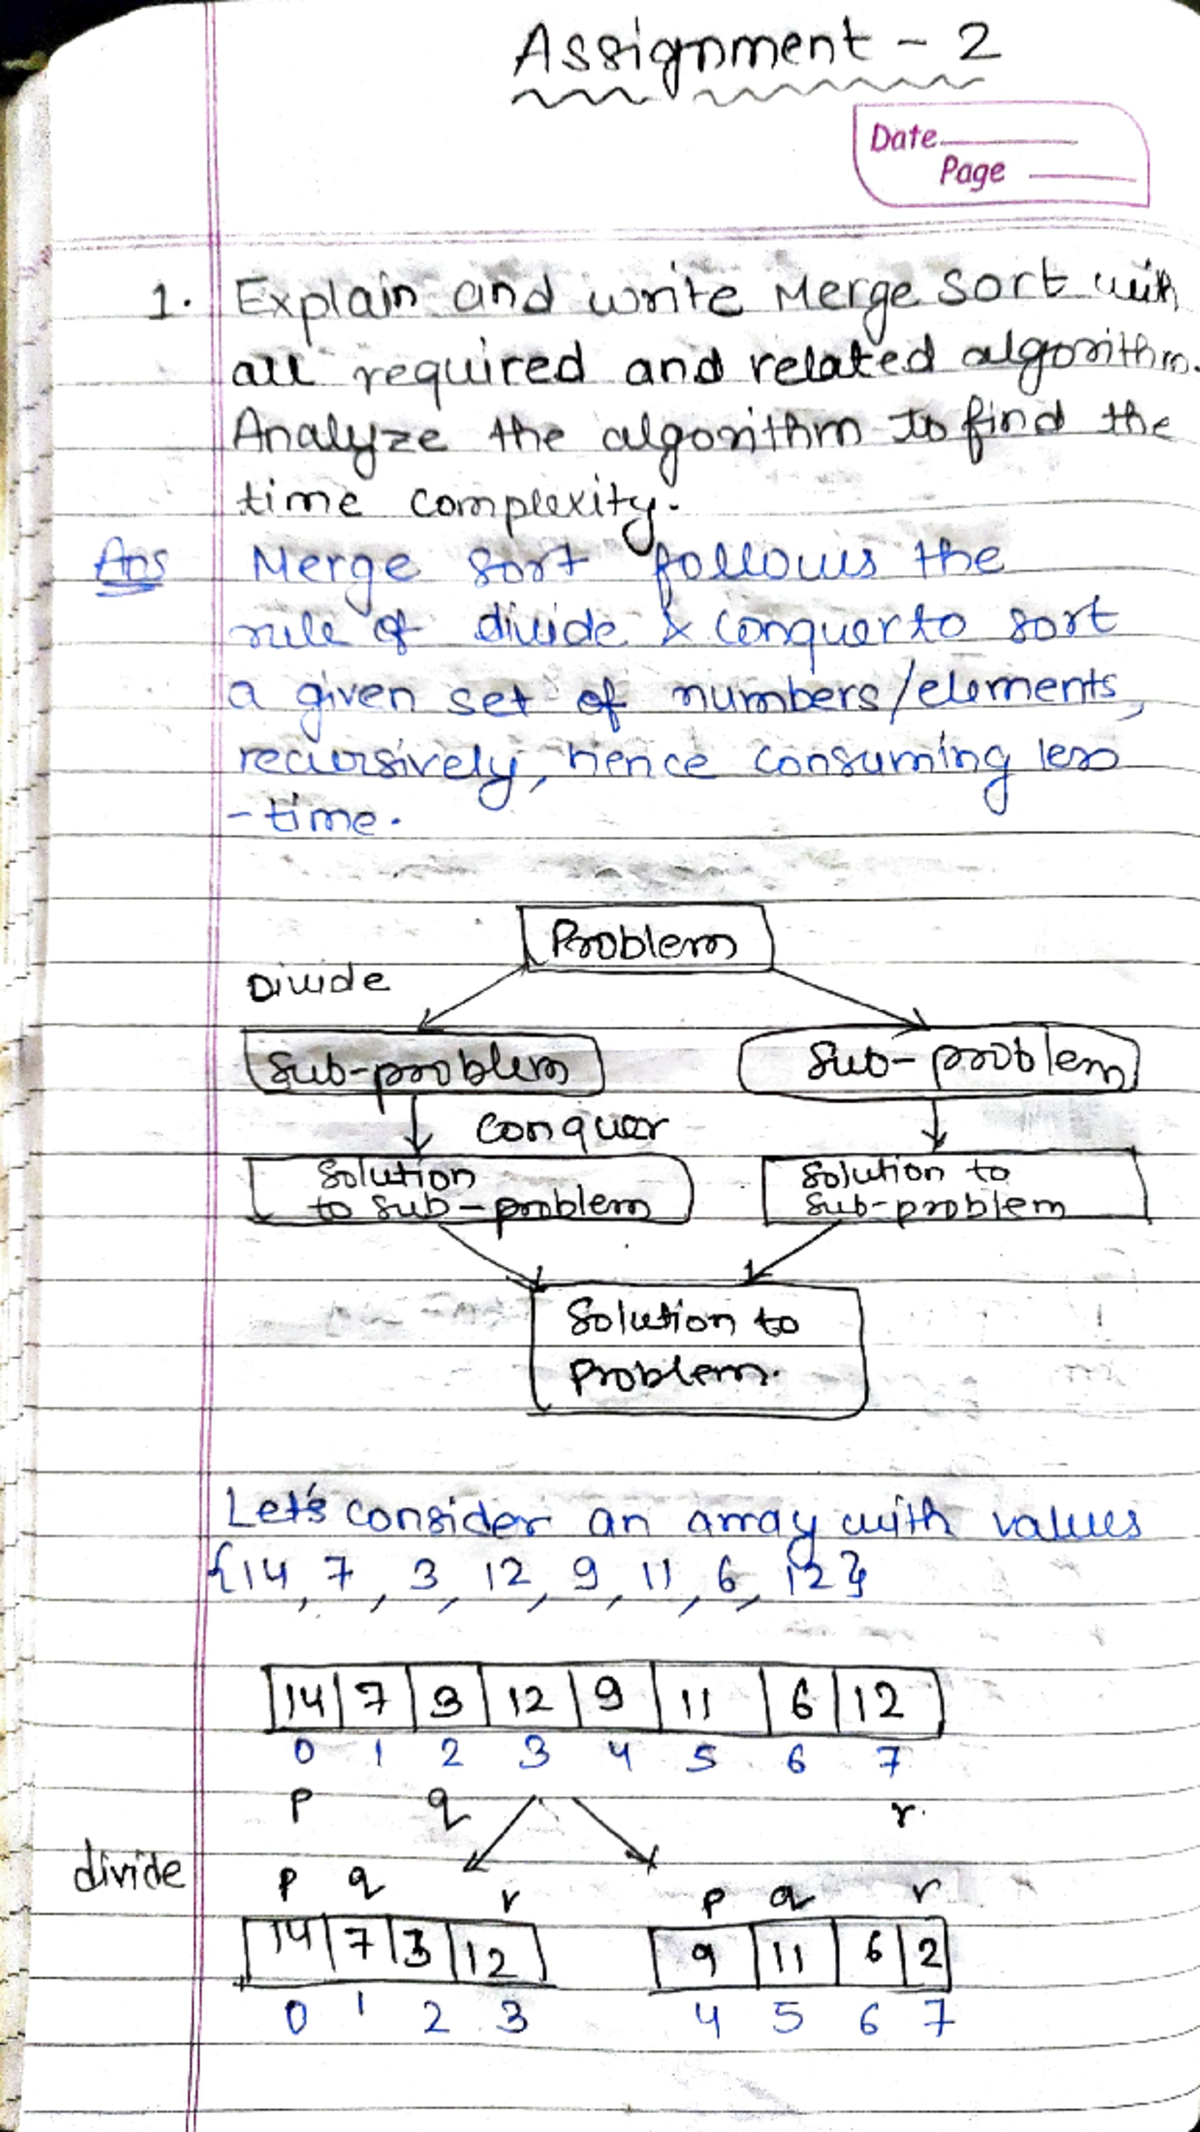 Assignment - 2
Date
Page
1. Explain and write Merge sort with
all required and related algorithm.
Analyze the algorithm to find the
time complexity.
Ans Merge sort follows the
rule of divide & conquer to sort
a given set of numbers/elements,
recursively, hence consuming less
- time.
Problem
Divide
Sub-problem Sub-problem
Conquer
Solution
to sub-problem
Solution to
Sub-problem
Solution to
Problem.
Let's consider an array with values
{14, 7, 3, 12, 9, 11, 6, 12}
14 7 3 12 9 11 6 12
0 1 2 3 4 5 6 7
p q r.
divide p q r p q r
14 7 3 12 9 11 6 2
0 1 2 3 4 5 6 7